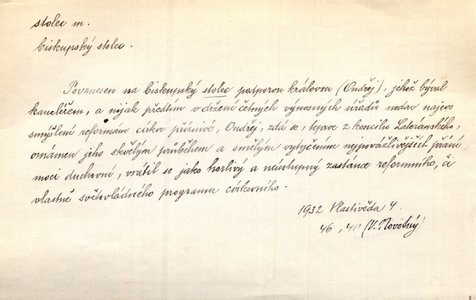 stolec m.
biskupský stolec.
Povznesen na biskupský stolec podporou královou (Ondřej), jehož býval
kancléřem, a nijak předtím v držení četných výnosných úřadů nedav najevo
smýšlení reformám církve příznivé, Ondřej, zdá se, teprve z koncilu Lateránského,
omámen jeho skvělým průběhem a smělým vytyčením nejpováżlivějších přání
moci duchovní, vrátil se jako horlivý a neústupný zastánce reformního, či
vlastně světovládného programu církevního.
1932 Vlastivěda 4
46, (V. Novotný)